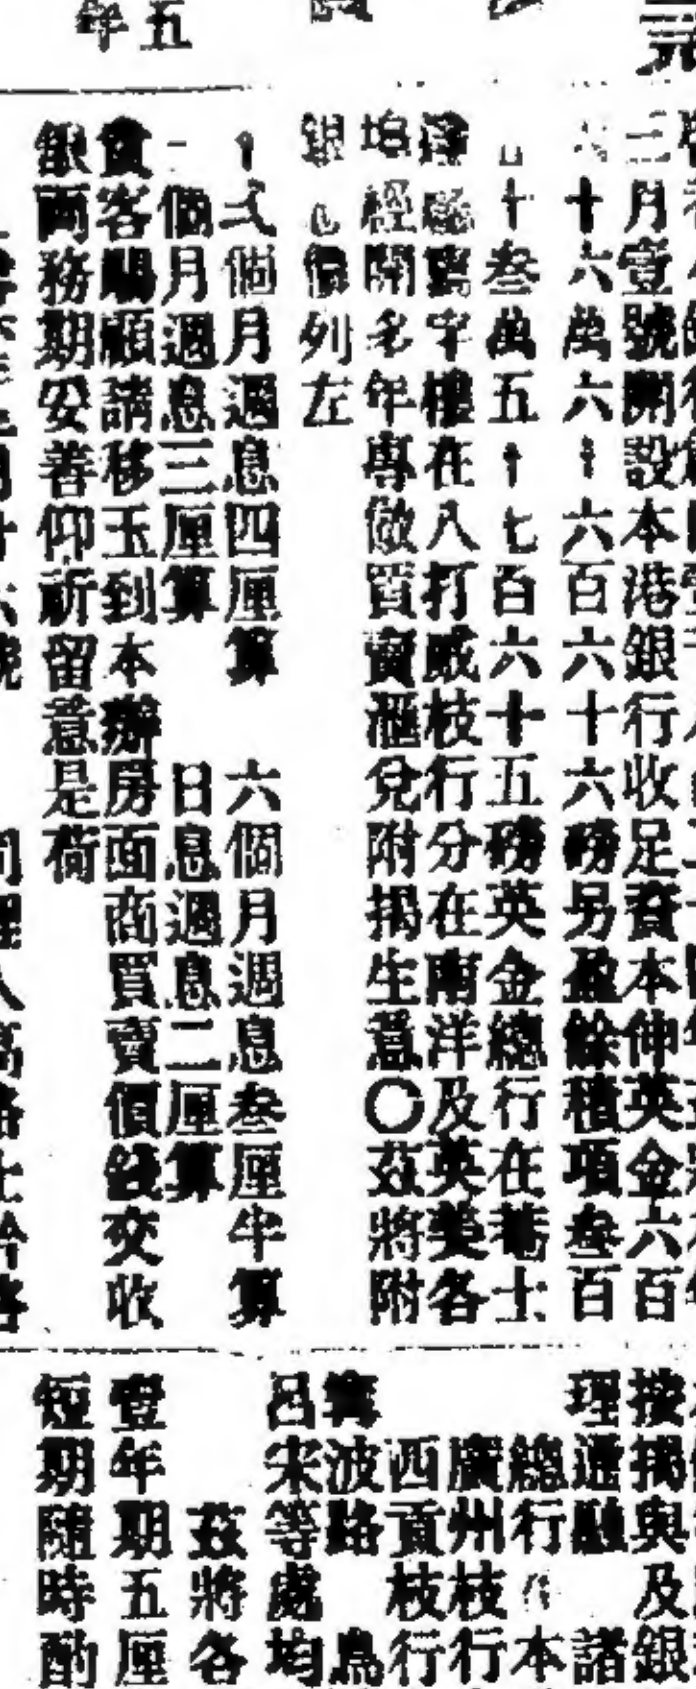 年五
三月壹號開設本港銀行收足資本伸英金六百
十六萬六千六百六十六磅另盈餘積項叁百
十叁萬五千七百六十五磅英金總行在荅士
寫字樓在八打威枝行分在南洋及英美各
埠經開多年專做買賣滙兌附揭生意〇茲將附
銀息價列左
十弍個月週息四厘算 六個月週息叁厘半算
一個月週息三厘算 日息週息二厘算
貴客賜顧請移玉到本辦房面商買賣價錢交收
銀両務期妥善仰祈留意是荷
按揭與及銀
理通融 諸
總行 本
廣州枝行
西貢枝行
寗波路
呂宋等處均
茲將各
壹年期五厘
短期隨時酌